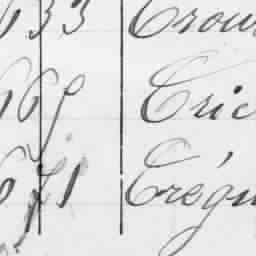 633 Crou
669 Eric
671 Crégu